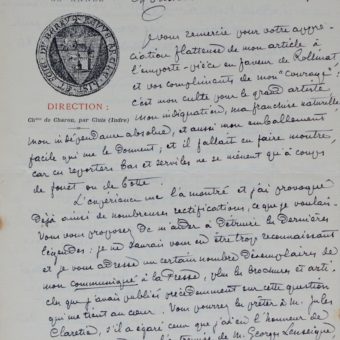 Je vous remercie pour votre appré-
ciation flatteuse de mon article à
l'emporte-pièce en faveur de Rollinat
et vos compliments de mon "courage":
c'est mon culte pour le grand artiste
DIRECTION :
Ch^au de Chazon, par Cluis (Indre)
mon indignation, ma franchise naturelle
mon indépendance absolue, et aussi mon emballement
facile qui me le donnent; et il fallait en faire montre
car ces reporters bas et serviles ne se mènent qu'à coups
de fouet ou de botte.
L'expérience me l'a montré et j'ai provoqué
déjà ainsi de nombreuses rectifications, ce que je voulais.
Vous vous proposez de m'aider à détruire les dernières
légendes: je ne saurais vous en être trop reconnaissant
et je vous adresse un certain nombre d'exemplaires de
mon communiqué à la Presse, plus les brochures et arti-
cles que j'avais publiés précédemment sur cette question
qui me tient au cœur. Vous pourrez les prêter à M. Jules
Claretie, s'il a égaré ceux que j'ai eu l'honneur de
de M. Georges Lenseigne,